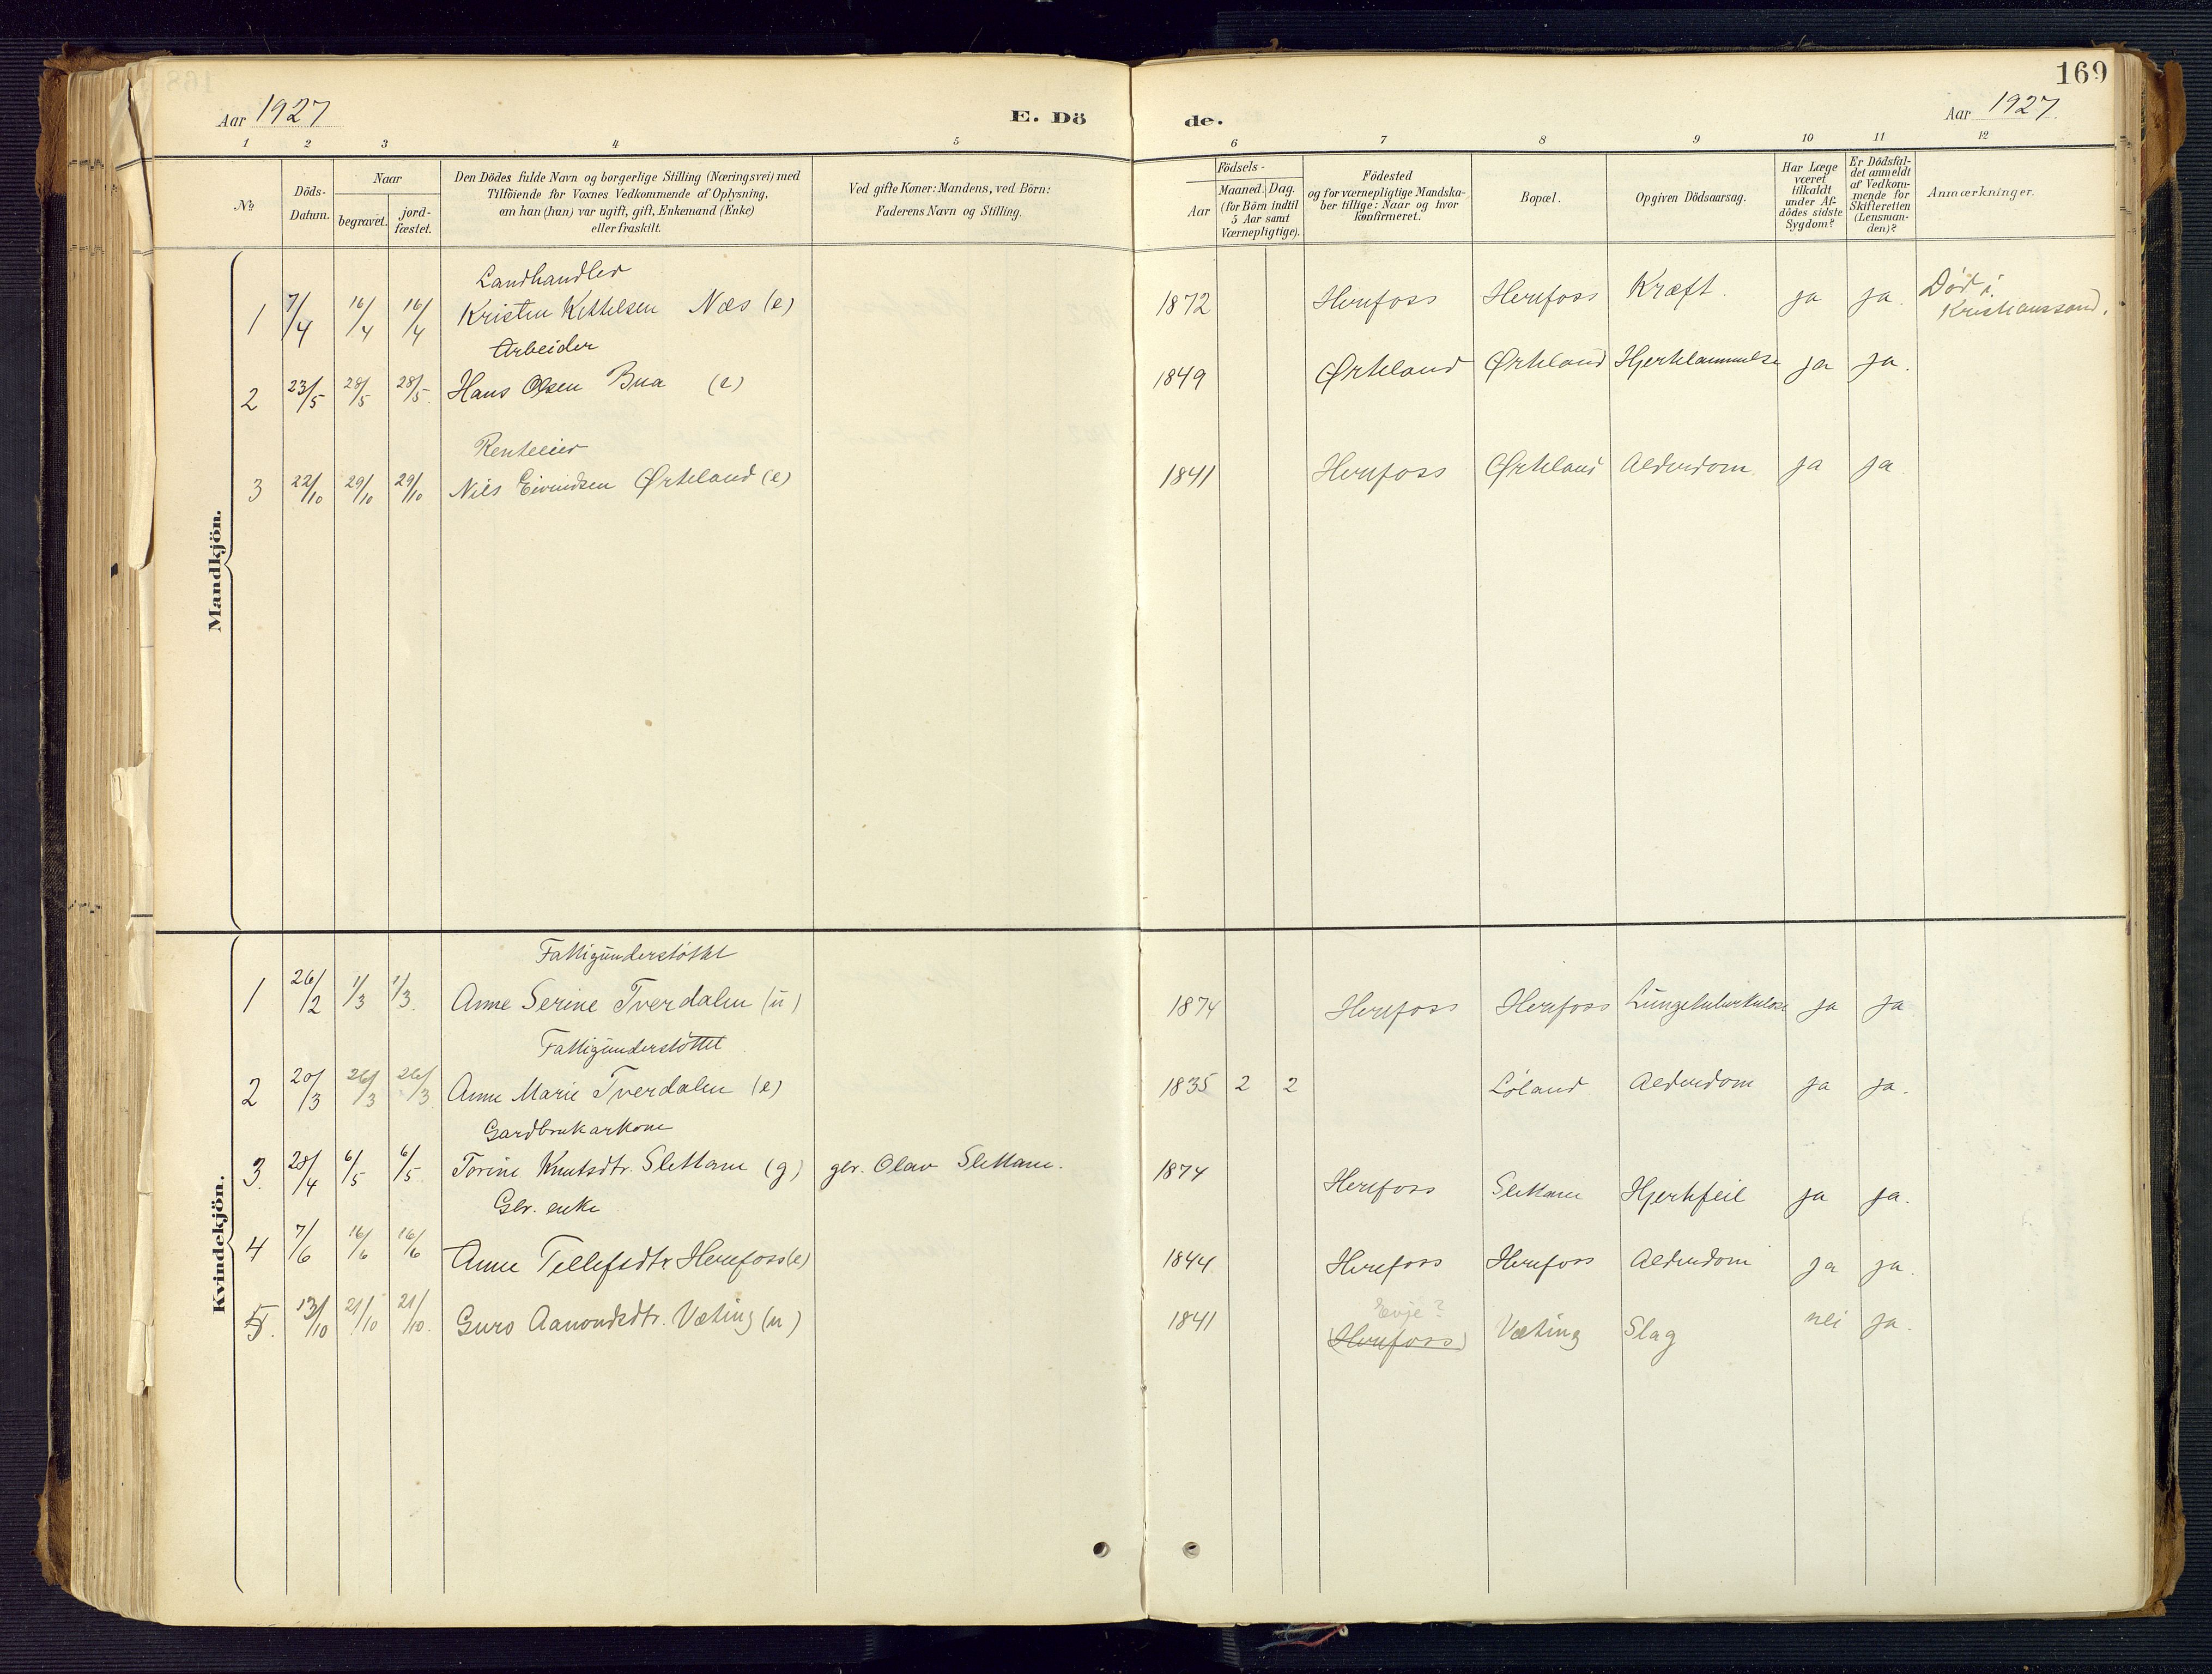 169
Aar 1927
E. Dö
de.
Aar 1927.
1 2 3 4 5 6 7 8 9 10 11 12
No
Döds-
Datum.
Naar
begravet.
jord-
fæstet.
Den Dödes fulde Navn og borgerlige Stilling (Næringsvei) med
Tilföiende for Voxnes Vedkommende af Oplysning,
om han (hun) var ugift, gift, Enkemand (Enke)
eller fraskilt.
Ved gifte Koner: Mandens, ved Börn:
Faderens Navn og Stilling.
Födsels-
Aar
Maaned. Dag.
(for Börn indtil
5 Aar samt
Værnepligtige).
Födested
og for værnepligtige Mandska-
ber tillige: Naar og hvor
konfirmeret.
Bopæl.
Opgiven Dödsaarsag.
Har Læge
været
tilkaldt
under Af-
dödes sidste
Sygdom?
Er Dödsfal-
det anmeldt
af Vedkom-
mende for
Skifteretten
(Lensman-
den)?
Anmærkninger.
Mandkjön.
Landhandler
1 7/4 16/4 16/4 Kristen Kettelsen Næs (e) 1872 Herefoss Herefoss Kræft. ja ja. Død i
Kristianssand.
Arbeider
2 23/5 28/5 28/5. Hans Olsen Bua (e) 1849 Ørteland Ørteland Hjertelammelse ja ja.
Renteeier
3 22/10 29/10 29/10 Nils Eivindsen Ørteland (e) 1841 Herefoss Ørteland Alderdom ja ja
Kvindekjön.
Fattigunderstøttet
1 26/2 1/3 1/3. Anne Serine Tverdalen (u) 1874 Herefoss Herefoss Lungetuberkulose ja ja
Fattigunderstøttet
2 20/3 26/3 26/3 Anne Marie Tverdalen (e) 1835 2 2 Løland Alderdom ja ja.
Gardbrukarkone
3. 28/4 6/5 6/5. Torine Knutsdtr. Slettane (g) gbr. Olav Slettane. 1874 Herefoss Slettane Hjertefeil ja ja.
Gbr. enke
4 7/6 16/6 16/6 Anne Tellefsdtr. Herefoss (e) 1844 Herefoss Herefoss Alderdom ja ja.
Evje?
5. 13/10 21/10 21/10. Guro Aanondsdtr. Væting (u) 1841 (Herefoss) Væting Slag nei ja.